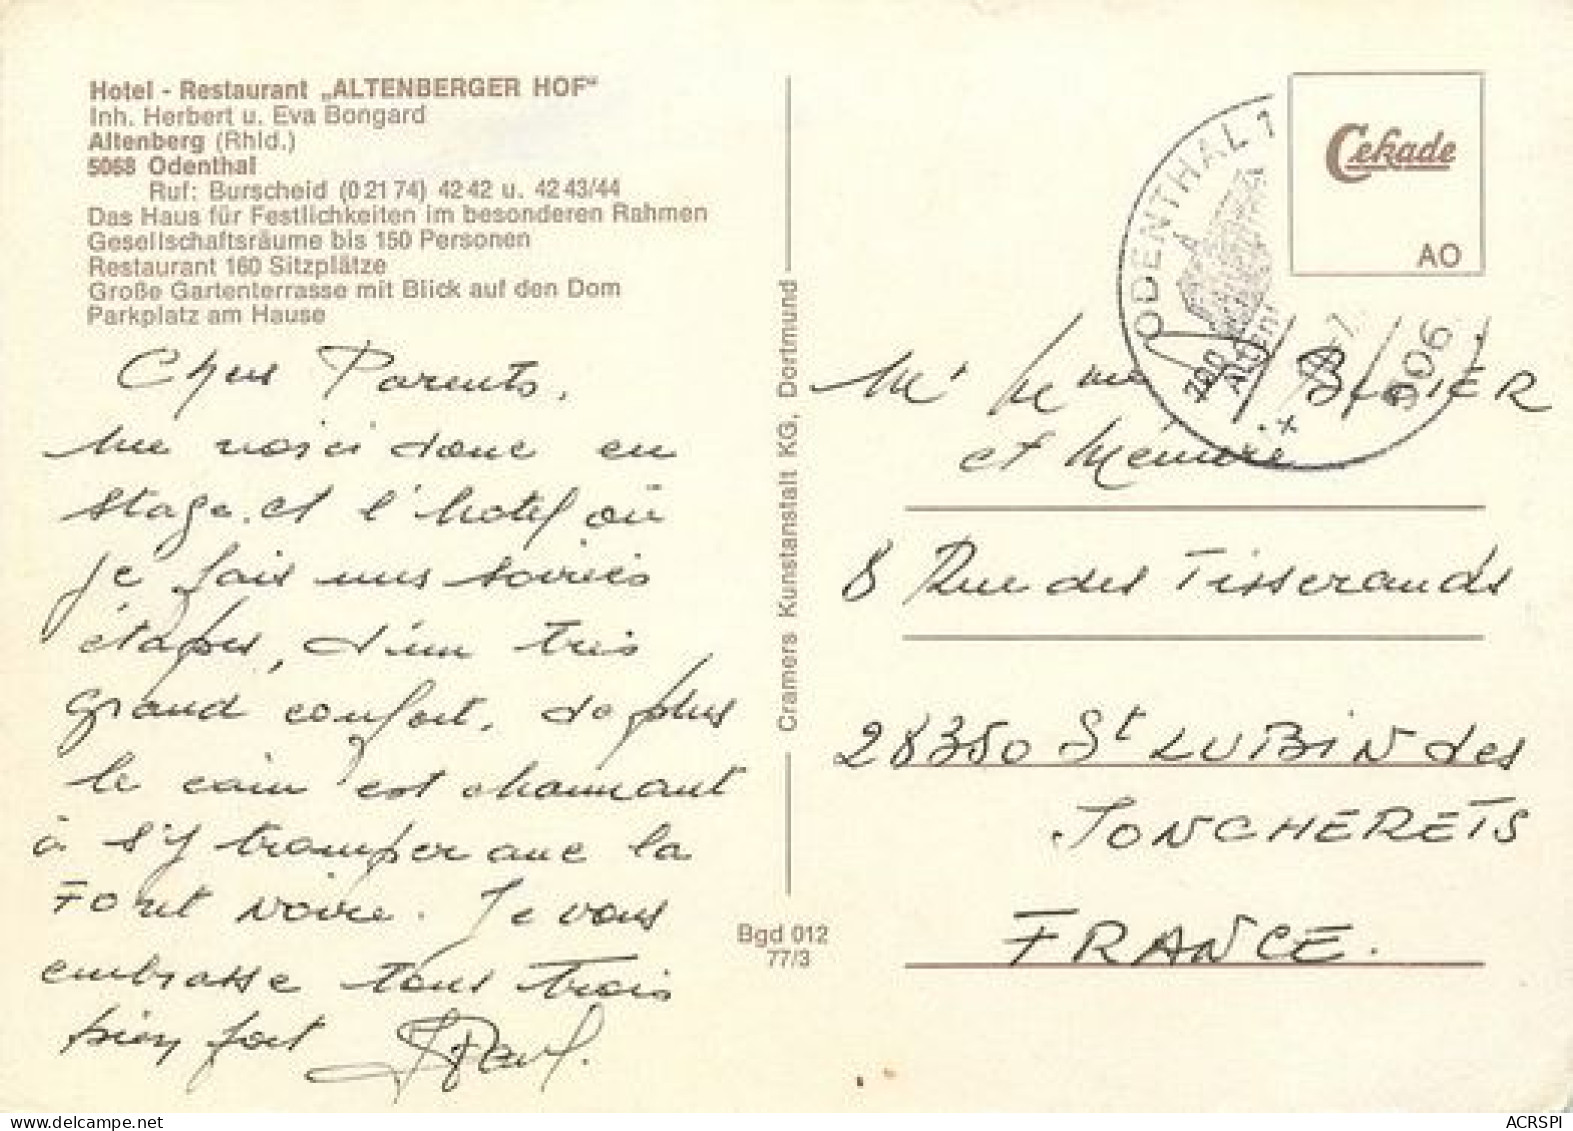 Hotel - Restaurant „ALTENBERGER HOF“
Inh. Herbert u. Eva Bongard
Altenberg (Rhld.)
5068 Odenthal
Ruf: Burscheid (0 21 74) 42 42 u. 42 43/44
Das Haus für Festlichkeiten im besonderen Rahmen
Gesellschaftsräume bis 150 Personen
Restaurant 160 Sitzplätze
Große Gartenterrasse mit Blick auf den Dom
Parkplatz am Hause
Chers Parents,
me voici donc en
stage. et l'hotel où
je fais mes soirées
étapes, d'un très
grand confort. de plus
le coin est charmant
à s'y tromper avec la
Foret Noire. Je vous
embrasse tous trois
bien fort
Cramers Kunstanstalt KG, Dortmund
Bgd 012
77/3
Cekade
AO
ODENTHAL 1
700
5068
Mr Mme
et Mémère
8 Rue des Tisserands
28350 St LUBIN des
JONCHERETS
FRANCE.
ACRSPI